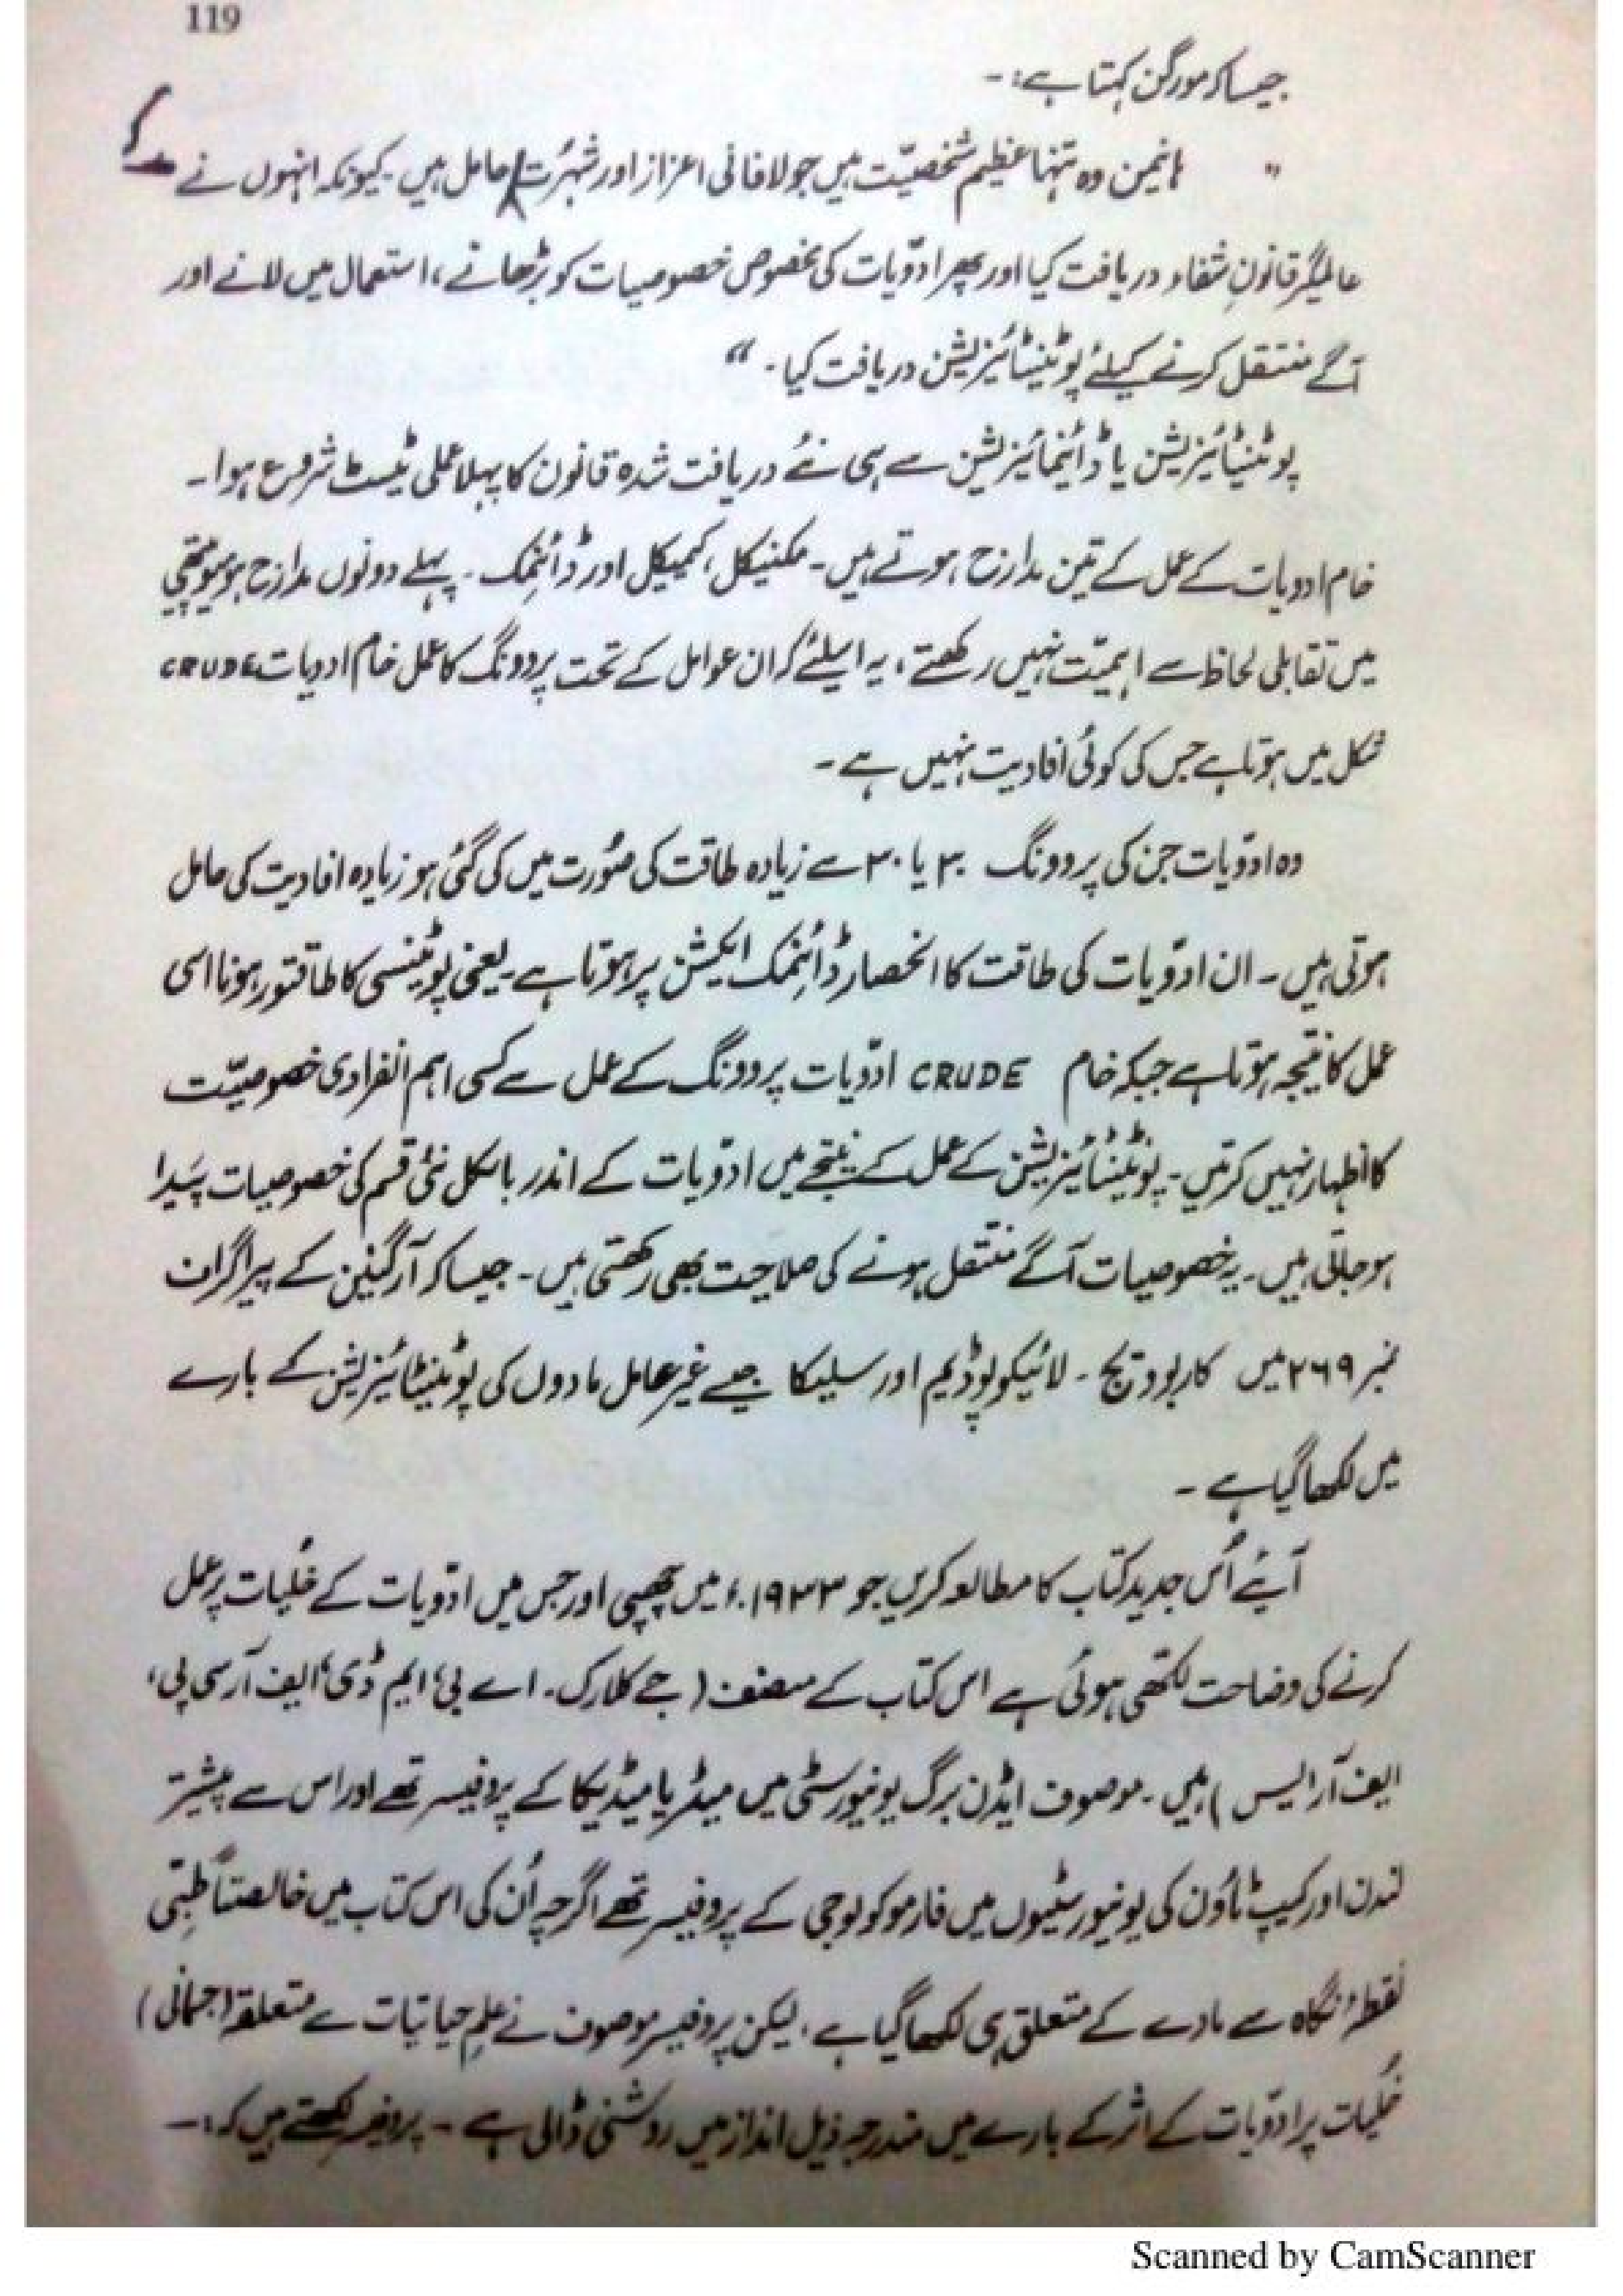 119
جیسا کہ مورگن کہتا ہے:-
" ہانیمن وہ تنہا عظیم شخصیّت ہیں جو لافانی اعزاز اور شہرُت کے حامل ہیں۔ کیونکہ انہوں نے
عالمگیر قانونِ شفاء دریافت کیا اور پھر ادوّیات کی مخصوص خصوصیات کو بڑھانے، استعمال میں لانے اور
آگے منتقل کرنے کیلئے پوٹینٹائیزیشن دریافت کیا۔ "
پوٹینٹائیزیشن یا ڈائینمائیزیشن سے ہی نئے دریافت شدہ قانون کا پہلا عملی ٹیسٹ شروع ہوا۔
خام ادویات کے عمل کے تین مدارج ہوتے ہیں۔ مکنیکل، کیمیکل اور ڈائنمِک۔ پہلے دونوں مدارج ہومیوپیتھی
میں تقابلی لحاظ سے اہمیّت نہیں رکھتے، یہ اسلئے کہ ان عوامل کے تحت پروونگ کا عمل خام ادویات CRUDE
شکل میں ہوتا ہے جس کی کوئی افادیت نہیں ہے۔
وہ ادوّیات جن کی پروونگ ۳۰ یا ۳۰ سے زیادہ طاقت کی صوُرت میں کی گئی ہو زیادہ افادیت کی حامل
ہوتی ہیں۔ ان ادوّیات کی طاقت کا انحصار ڈائنمِک ایکشن پر ہوتا ہے۔ یعنی پوٹینسی کا طاقتور ہونا اسی
عمل کا نتیجہ ہوتا ہے جبکہ خام CRUDE ادوّیات پروونگ کے عمل سے کسی اہم انفرادی خصوصیّت
کا اظہار نہیں کرتیں۔ پوٹینٹائیزیشن کے عمل کے نیتجے میں ادوّیات کے اندر بالکل نئی قسم کی خصوصیات پَیدا
ہو جاتی ہیں۔ یہ خصوصیات آگے منتقل ہونے کی صلاحیت بھی رکھتی ہیں۔ جیسا کہ آرگینن کے پیراگراف
نمبر ۲۶۹ میں کاربوویج۔ لائیکوپوڈیم اور سلیکا جیسے غیر عامل مادوں کی پوٹینٹائیزیشن کے بارے
میں لکھا گیا ہے۔
آیئے اُس جدید کتاب کا مطالعہ کریں جو ۱۹۳۳ء میں چھپی اور جس میں ادوّیات کے خُلیات پر عمل
کرنے کی وضاحت لکھّی ہوئی ہے اس کتاب کے مصنف (جے کلارک۔ اے بی، ایم ڈی، ایف آر سی پی،
ایف آر ایس) ہیں۔ موصوف ایڈن برگ یونیورسٹی میں میٹریا میڈیکا کے پروفیسر تھے اور اس سے پیشتر
لندن اور کیپ ٹاؤن کی یونیورسٹیوں میں فارموکولوجی کے پروفیسر تھے اگرچہ اُن کی اس کتاب میں خالصتاً طِبّی
نقطۂ نگاہ سے مادے کے متعلق ہی لکھا گیا ہے، لیکن پروفیسر موصوف نے علمِ حیاتیات سے متعلقہ (جسمانی)
خُلیات پر ادوّیات کے اثر کے بارے میں مندرجہ ذیل انداز میں روشنی ڈالی ہے۔ پروفیسر لکھتے ہیں کہ:-
Scanned by CamScanner